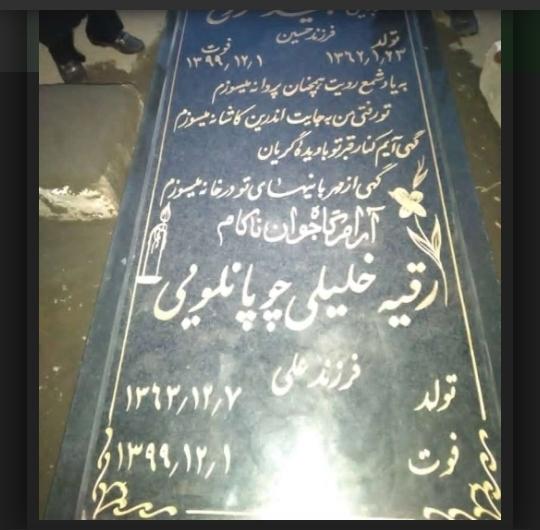 فرزند حسین
تولد فوت
۱۳۶۲٫۱٫۲۳ ۱۳۹۹٫۱۲٫۱
به یاد شمع رویت همچنان پروانه میسوزم
تو رفتی من به جایت اندرین کاشانه میسوزم
گهی آیم کنار قبر تو با دیده گریان
گهی از مهربانیهای تو در خانه میسوزم
آرامگاه جوان ناکام
رقیه خلیلی چوپانلویی
فرزند علی
تولد ۱۳۶۳٫۱۲٫۷
فوت ۱۳۹۹٫۱۲٫۱